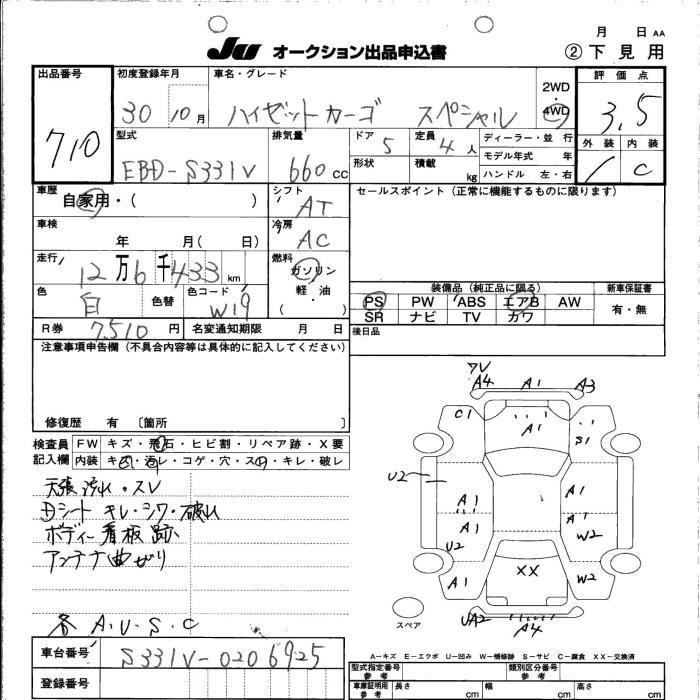 月 日 AA
JU オークション出品申込書
② 下見用
出品番号
710
初度登録年月
30 10 月
車名・グレード
ハイゼットカーゴ スペシャル
2WD
・
4WD
評価点
3.5
外装 内装
1 C
型式
EBD-S331V
排気量
660 cc
ドア
5
定員
4 人
形状
積載
kg
ディーラー・並行
モデル年式 年
ハンドル 左・右
車歴
自家用・( )
シフト
AT
セールスポイント(正常に機能するものに限ります)
車検
年 月( 日)
冷房
AC
走行
12万6千433 km
燃料
ガソリン
軽・油
・
色
白
色替
色コード
W19
装備品(純正品に限る)
PS PW ABS エアB AW
SR ナビ TV カワ
新車保証書
有・無
R券 7510 円
名変通知期限 月 日
後日品
注意事項申告欄(不具合内容等は具体的に記入してください)
修復歴 有 〔箇所 〕
検査員
記入欄
FW キズ・飛石・ヒビ割・リペア跡・X要
内装 キズ・汚レ・コゲ・穴・スレ・キレ・破レ
天張汚れ・スレ
Dシート キレ・シワ・破れ
ボディー看板跡
アンテナ曲がり
各 A・U・S・C
フレ
A4 A1 A3
C1
A1
S1
U2
A1 A1
A1 A1
U2 W2
A1 XX W2
UA2 A4
スペア
A-キズ E-エクボ U-凹み W-補修跡 S-サビ C-腐食 XX-交換済
車台番号
S331V-0206925
登録番号
型式指定番号
参考
類別区分番号
参考
車庫証明用
参考
長さ cm
幅 cm
高さ cm